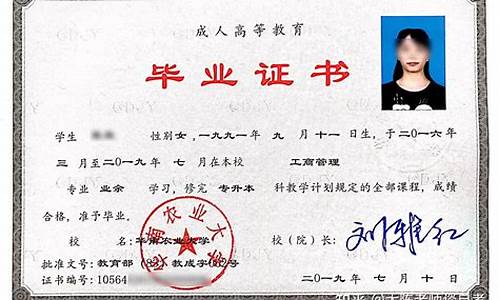 成人高等教育
毕业证书
学生 性别女,一九九一年 九 月十一日生,于二〇一六年
三 月至二〇一九年 七 月在本校 工商管理
专业 业余 学习,修完 专升本 科教学计划规定的全部课程,成绩
合格,准予毕业。
校 名:华南农业大学 校(院)长: 刘雅红
批准文号:教育部 教成字 号
证书编号:10564
二〇一九年 七 月 十 日
华南农业大学